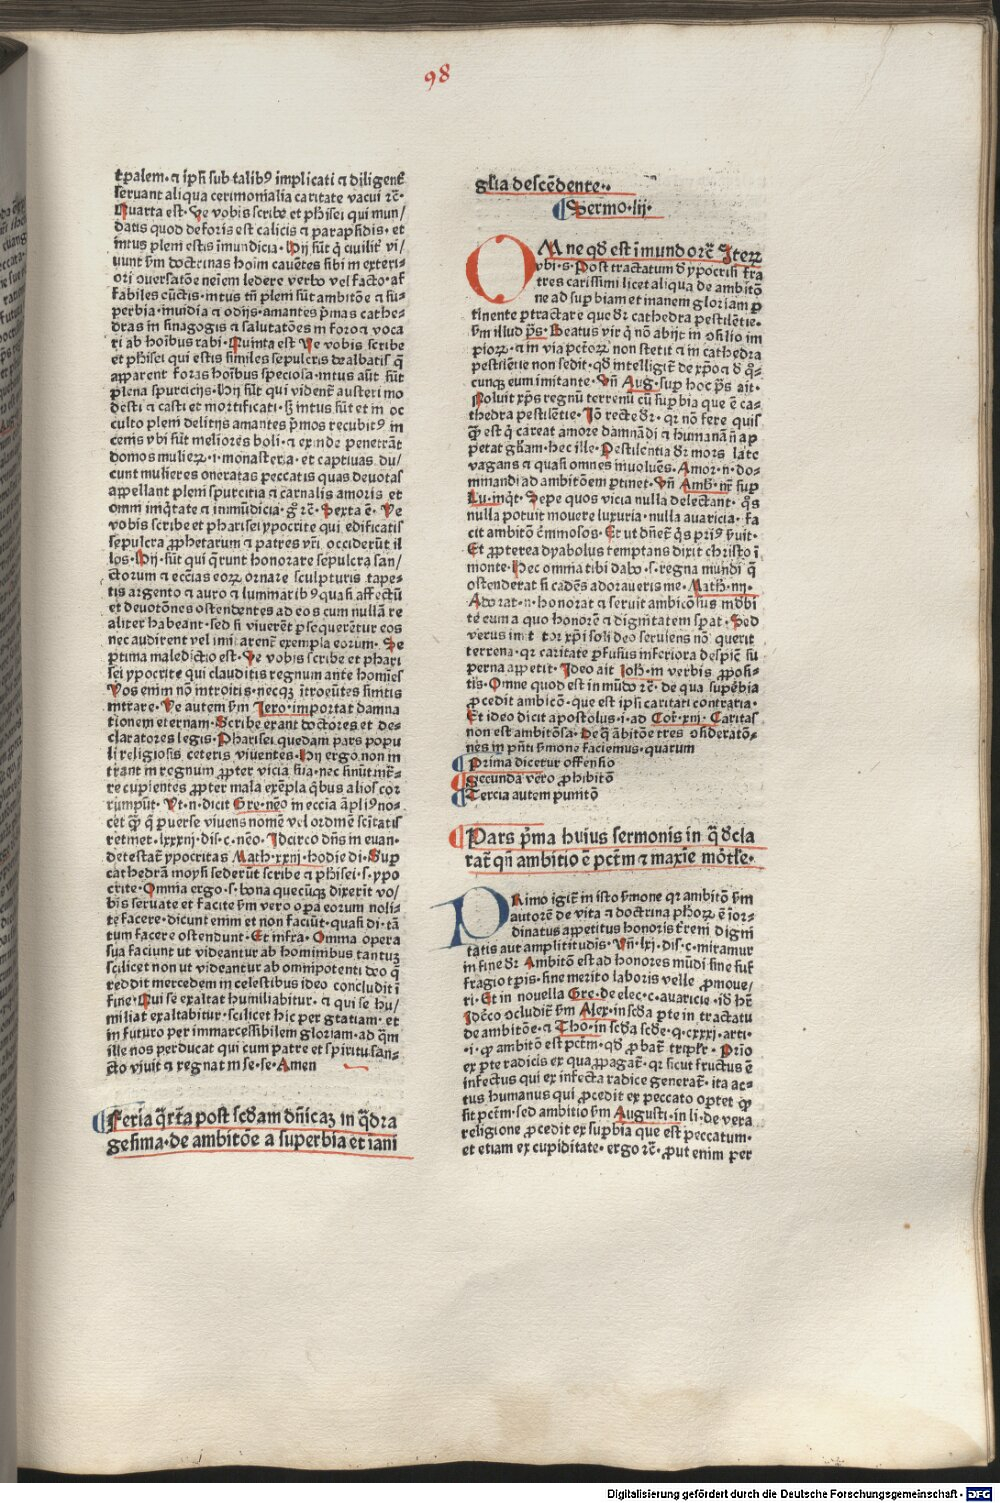 98
tpalem· ⁊ ip̄i sub talibꝰ implicati ⁊ diligent̄
seruant aliqua cerimonialia caritate vacui ⁊c̄·
Quarta est· Ve vobis scribe et ph̄isei qui mun/
datis quod deforis est calicis ⁊ parapsidis· et
intus pleni estis īmundicia· Hij sūt q̄ ciuilit̄ vi/
uunt s̄m doctrinas hoīm cauētes sibi in exteri-
ori ꝯuersatōe neīem ledere verbo vel facto· af
fabiles cūctis· intus tn̄ pleni sūt ambitōe ⁊ su-
perbia· inuidia ⁊ odijs· amantes p̄mas cathe-
dras in sinagogis ⁊ salutatōes in foro ⁊ voca
ri ab hoībus rabi· Quinta est Ve vobis scribe
et ph̄isei qui estis similes sepulcris dealbatis q̄
apparent foras hoībus speciosa· intus aūt sūt
plena spurcicijs· Hij sūt qui vident̄ austeri mo
desti ⁊ casti et mortificati· sꝫ intus sūt et in oc
culto pleni delitijs amantes p̄mos recubitꝰ in
cenis vbi sūt meliores boli· ⁊ exinde penetrāt
domos mulieꝝ ·i· monasteria· et captiuas du/
cunt mulieres oneratas peccatis quas deuotas
appellant pleni spurcitia ⁊ carnalis amoris et
omni inq̄tate ⁊ inmūdicia· gͣ ⁊c̄· Sexta ē· Ve
vobis scribe et pharisei ypocrite qui edificatis
sepulcra ꝓphetarum ⁊ patres vr̄i occiderūt il
los· Hij· sūt qui q̄runt honorare sepulcra san/
ctorum ⁊ ecc̄ias eoꝝ ornare sculpturis tape-
tis argento ⁊ auro ⁊ luminaribꝰ quasi affectū
et deuotōnes ostendentes ad eos cum nullā re
aliter habeant· sed si viuerēt ꝑsequerētur eos
nec audirent vel imitarent̄ exempla eorum· Se
ptima maledictio est· Ve vobis scribe et phari
sei ypocrite qui clauditis regnum ante homīes
Vos enim nō introitis· necqꝫ ītroeūtes sinitis
intrare· Ve autem s̄m Jero· importat damna
tionem eternam· Scribe erant doctores et de-
claratores legis· Pharisei quedam pars popu
li religiosis ceteris viuentes· Hij ergo non in
trant in regnum ꝓpter vicia sua· nec sinūt intr̄-
re cupientes ꝓpter mala exēpla q̄bus alios cor
rūmpūt· Vt·n·dicit Gre· nēo in ecc̄ia āpliꝰ no-
cet qͣ q̄ ꝑuerse viuens nomē vel ordinē sc̄itatis
retinet· lxxxiij·dis·c·nēo· Jdcirco dn̄s in euan-
detestat̄ ypocritas Math·xxiij·hodie di· Suꝑ
cathedrā moysi sederūt scribe ⁊ ph̄isei·s·ypo
crite· Omnia ergo·s·bona quecūqꝫ dixerīt vo/
bis seruate et facite s̄m vero oꝑa eorum noli-
te facere· dicunt enim et non faciūt· quasi di·tā
tum facere ostendunt· Et infra· Omnia opera
sua faciunt ut videantur ab hominibus tantuꝫ
scilicet non ut videantur ab omnipotenti deo q̄
reddit mercedem in celestibus ideo concludit ī
fine· Qui se exaltat humiliabitur· ⁊ qui se hu/
miliat exaltabitur· scilicet hic per gratiam· et
in futuro per immarcessibilem gloriam· ad qͣm
ille nos perducat qui cum patre et spiritu san-
cto viuit ⁊ regnat in se·se·Amen
Feria q̄rta post scd̄am dn̄icaꝫ in q̄dra
gesima· de ambitōe a superbia et inani
gl̄ia descēdente··
Sermo·lij·
OMne qd̄ est ī mundo ⁊c̄ Iteꝝ
vbi·s· Post tractatum d̄ ypocrisi fra
tres carissimi licet aliqua de ambitō
ne ad suꝑbiam et inanem gloriam ꝑ
tinente ꝑtractare que dr̄ cathedra pestilētie·
s̄m illud p̄s· Beatus vir q̄ nō abijt in ꝯsilio im
pioꝝ· ⁊ in via pctōꝝ non stetit ⁊ in cathedra
pestilentie non sedit· qd̄ intelligit̄ de xp̄o ⁊ d̄ qͦ-
cunqꝫ eum imitante· Vn̄ Aug· suꝑ hoc p̄s ait·
Noluit xp̄s regnū terrenū cū suꝑbia que ē ca-
thedra pestilētie· Jō recte dr̄· qr nō fere quis
qͣ est q̄ careat amore damnādi ⁊ humanā n̄ ap
petat gl̄iam· hec ille· Pestilentia dr̄ mors late
vagans ⁊ quasi omnes inuoluēs· Amor·n·do-
minandi ad ambitōem ꝑtinet· Vn̄ Amb·ir̄ suꝑ
Lu·inqͭ· Sepe quos vicia nulla delectant· q̄s
nulla potuit mouere luxuria· nulla auaricia· fa
cit ambitō c̄mmosos· Et ut dn̄et̄ q̄s priꝰ suit·
Et ꝓpterea dyabolus temptans dixit christo ī
monte· Hec omnia tibi dabo·s·regna mundi q̄
ostenderat si cadēs adoraueris me· Math·iiij·
Adorat·n·honorat ⁊ seruit ambicōsus mōbi
te eum a quo honorē ⁊ dignitatem sꝑat· Sed
verus imitator xp̄i soli deo seruiens nō querit
terrena· qr caritate ꝑfusus inferiora despic̄ su
perna appetit· Jdeo ait Joh̄·in verbis ꝓposi-
tis· Omne quod est in mūdo ⁊c̄· de qua suꝑbia
ꝓcedit ambicō· que est ip̄i caritati contraria·
Et ideo dicit apostolus·i·ad Cor̄·xiij· Caritas
non est ambitōsa· De qͣ ābitōe tres ꝯsideratō-
nes in pn̄ti s̄mone faciemus· quarum
Prima dicetur offensio
Secunda vero ꝓhibitō
Tercia autem punitō
Pars p̄ma huius sermonis in qͣ dcla
rat̄ qn̄ ambitio ē pctm̄ ⁊ maxīe mōtle·
PRimo igit̄ in isto s̄mone qr ambitō s̄m
autorē de vita ⁊ doctrina ph̄oꝝ ē īor-
dinatus appetitus honoris t̄reni digni
tatis aut amplititudis· Vn̄·lxj·dis·c·miramur
in fine dr̄ Ambitō est ad honores mūdi sine suf
fragio tꝑis· sine merito laboris velle ꝓmoue/
ri· Et in nouella Gre·de elec·c·auaricie·id̄ hr̄
Jdēco ocludit̄ s̄m Alex·in scd̄a ꝑte in tractatu
de ambitōe·⁊ Tho·in scd̄a scd̄e·q·cxxxj·arti·
·i·ꝙ ambitō est pctm̄· qd̄ ꝓbat̄ triplr̄· Prio
ex ꝑte radicis ex qua ꝓpagat̄· qr sicut fructus ē
infectus qui ex infecta radice generat̄· ita ac-
tus humanus qui ꝓcedit ex peccato oꝑtet ꝙ
sit pctm̄· sed ambitio s̄m Augusti·in li·de vera
religione ꝓcedit ex suꝑbia que est peccatum·
et etiam ex cupiditate· ergo ⁊c̄· ꝓut enim per
Digitalisierung gefördert durch die Deutsche Forschungsgemeinschaft - DFG